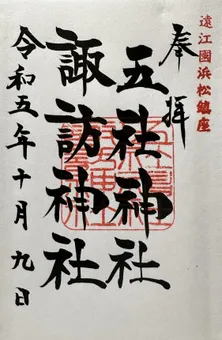 遠江國浜松鎮座
奉拝
五社神社
諏訪神社
令和五年十月九日